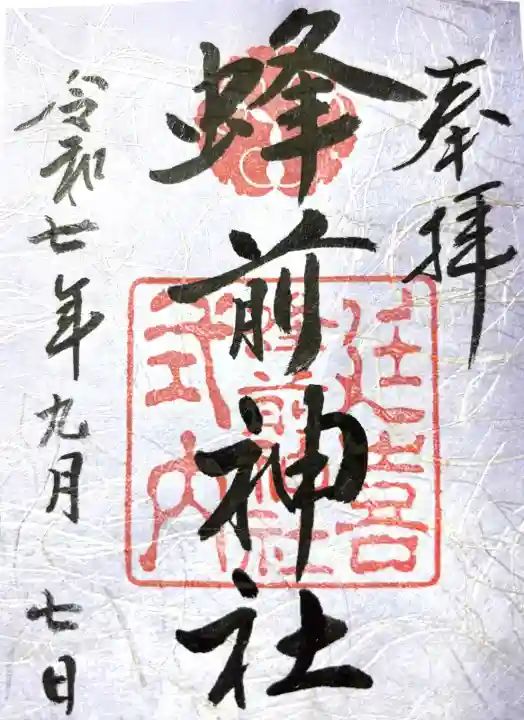 奉拝
蜂前神社
延喜
蜂前神社
式内
令和七年九月七日